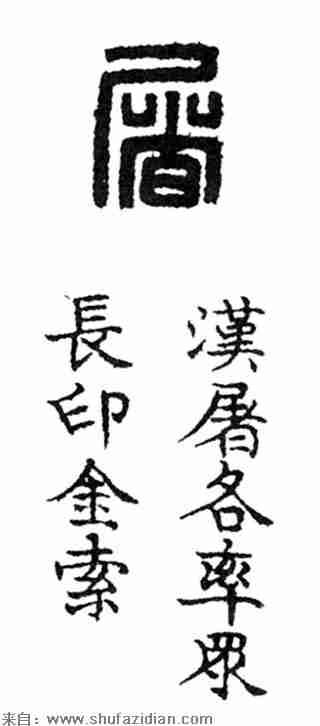 屠
漢屠各率眾
長印金索
来自：www.shufazidian.com